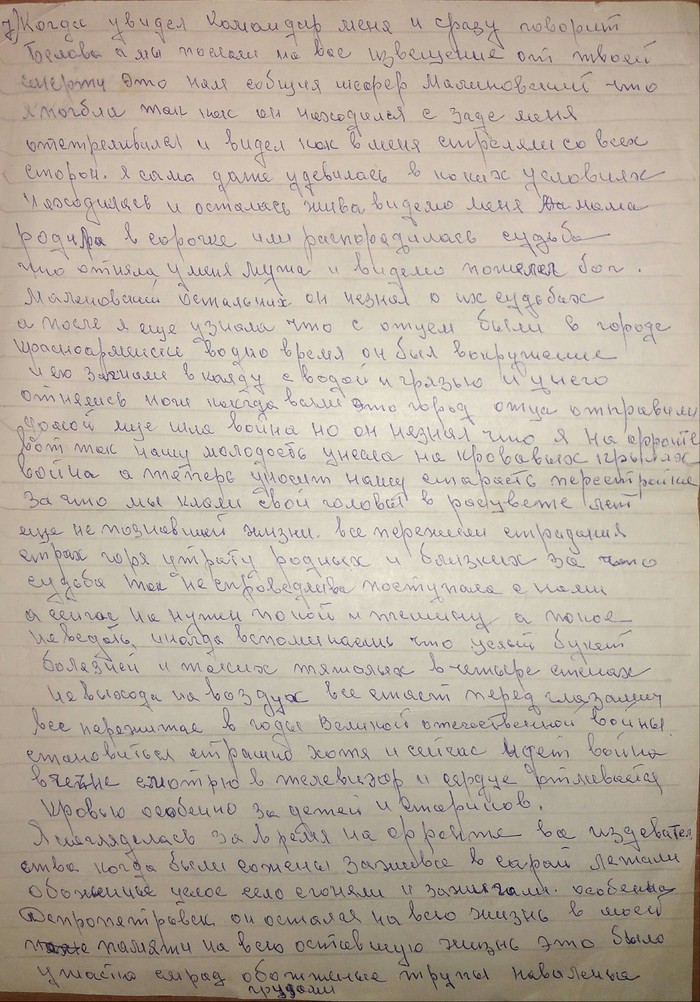 7) Когда увидел Командир меня и сразу говорит
Белова а мы послали на вас извещение от твоей
смерти это нам собщил шофер Малиновский что
я погибла так как он находился с заде меня
отстреливался и видел как в меня стреляли со всех
сторон. я сама даже удевилась в каких условиях
находилась и осталась жива видемо меня мама
родила в сорочке или распорядилась судьба
что отняла у меня мужа и видемо пожелел бог.
Малиновский остальних он незнал о их судьбах
а после я еще узнала что с отцем были в городе
красноармейске водно время он был вокружение
и его загнали в с водой и грязью и у него
отнялись ноги когда взяли это город отца отправили
домой еще шла война но он незнал что я на фронте
вот так нашу молодость унесла на кровавых крылях
война а теперь уносит нашу старасть перестройка
за что мы клали свои головы в расцвете лет
еще не познавшей жизни. все пережили страдания
страх горя утрату родных и близких за что
судьба так не справедлива поступала с нами
а сейчас на нужен покой и тишину а покоя
неведать иногда вспоминаешь что целый букет
болезней и таких тяжолых в четыре стенах
невыхода на воздух все стаёт перед глазами
все пережитае в годы Великой отечественной войны
становиться страшно хотя и сейчас идет война
в смотрю в телевизор и сердце отливается
кровью особенно за детей и стариков.
Я нагляделась за время на фронте все издеватель
ства когда были сожены заживое в сарай лежали
обоженные целое село сгоняли и зажигали. особенно
Днепропетровск он остался на всю жизнь в моей
памяти на всю оставшую жизнь это было
ужасно смрад обожженые трупы наваленые
грудами